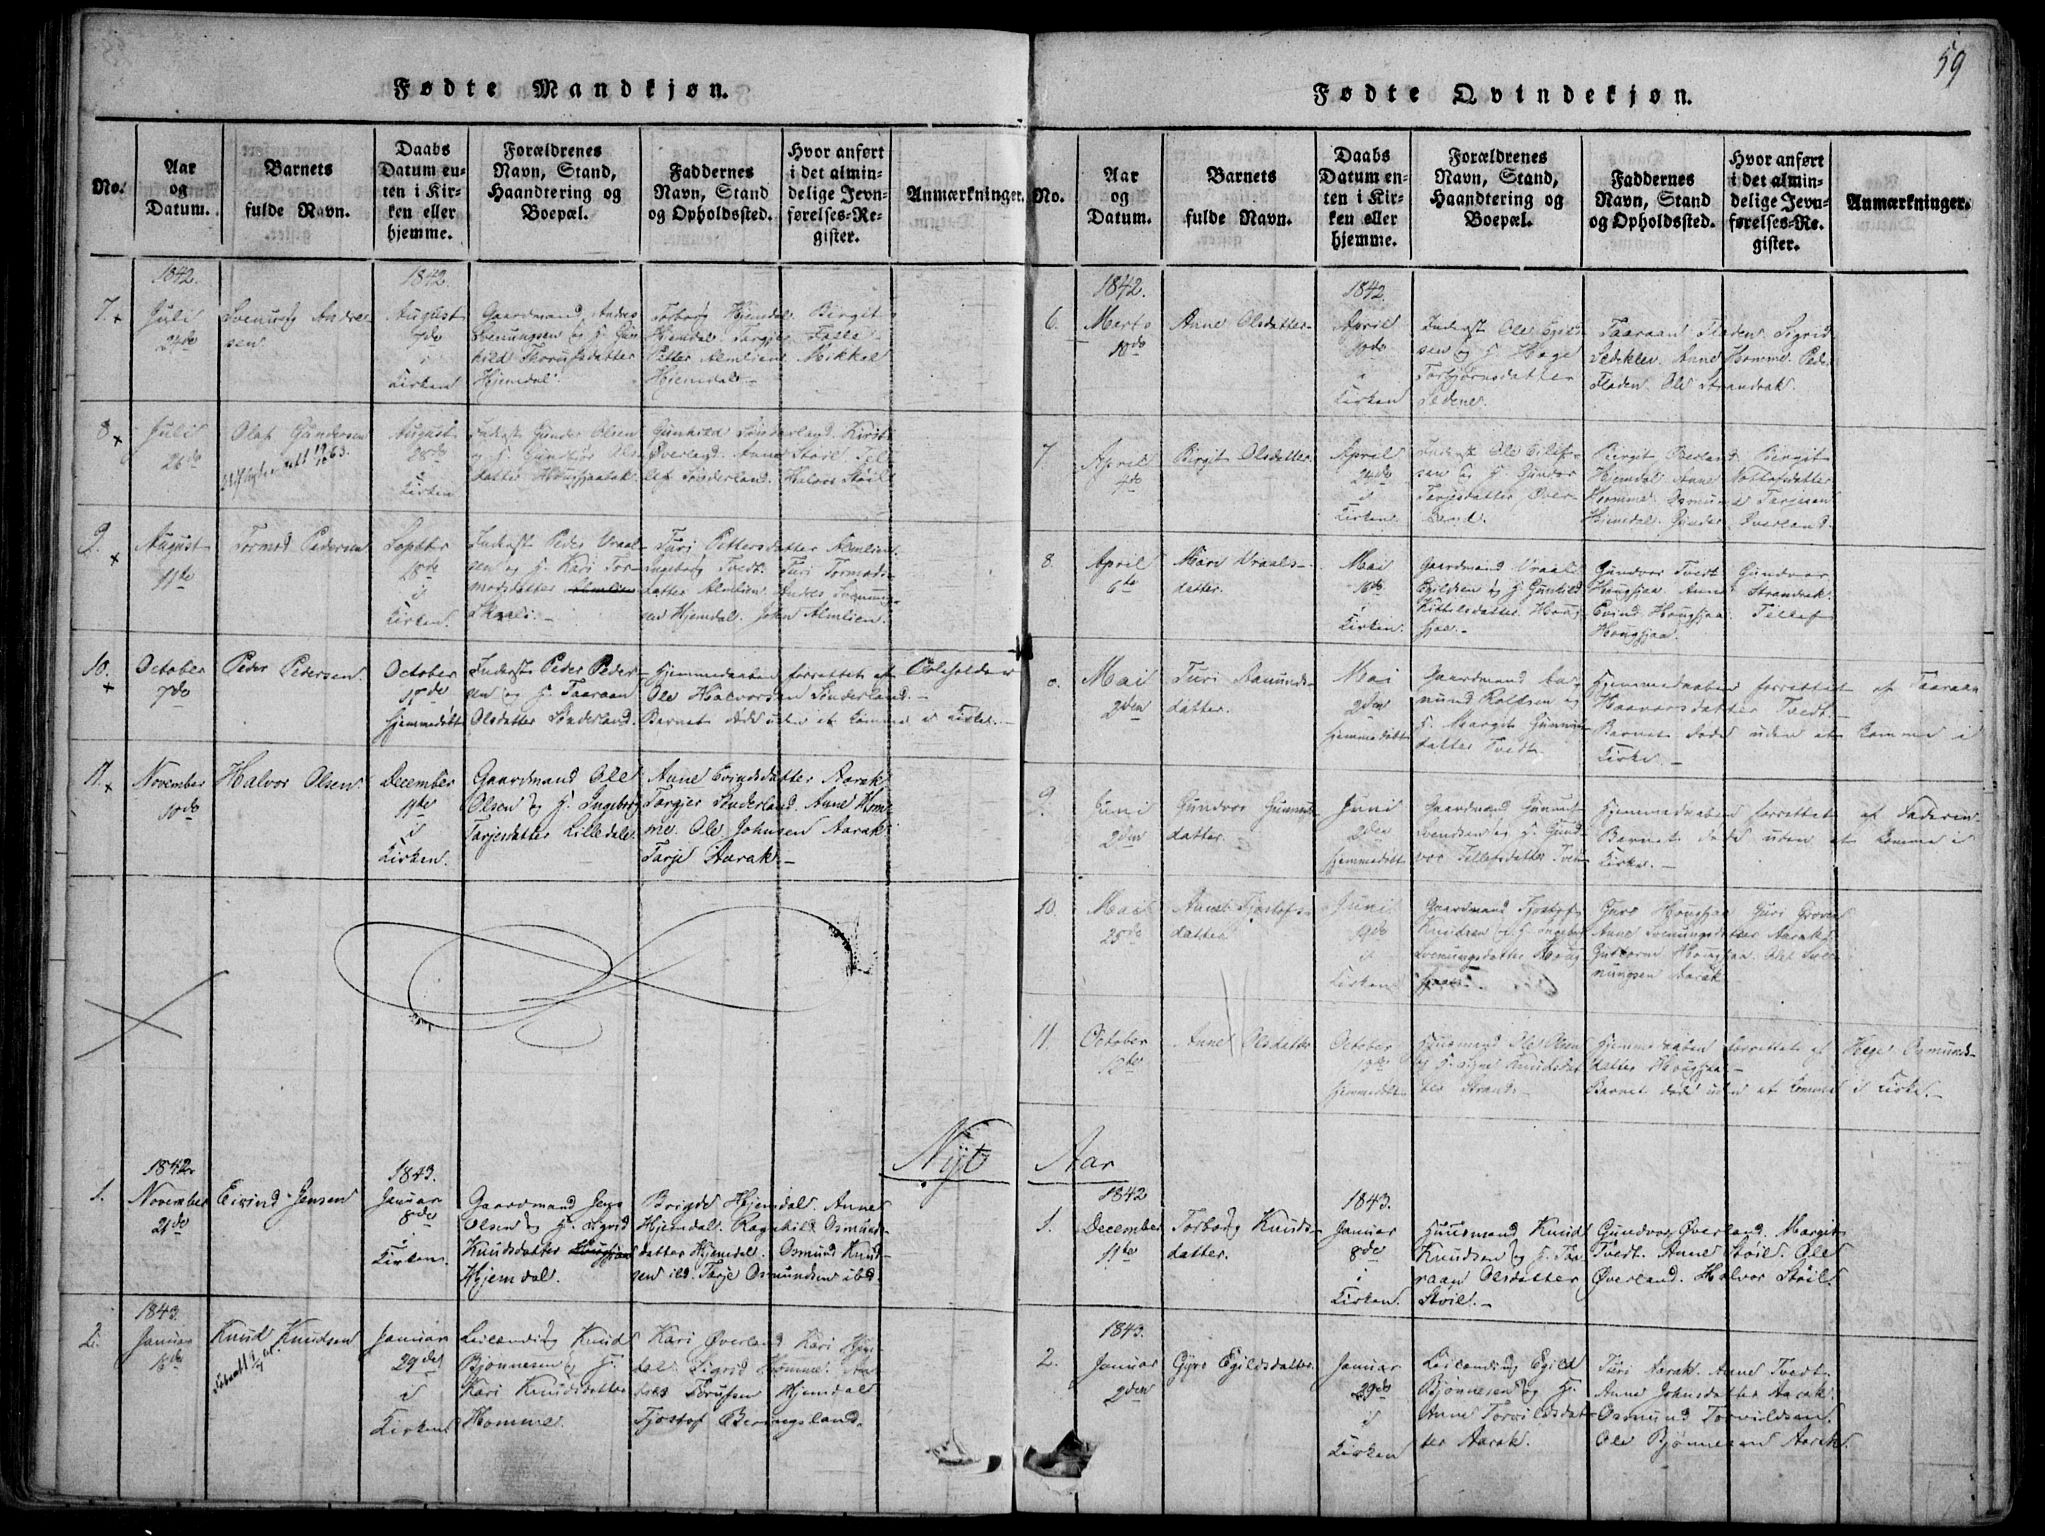 59
Fødte Mandkjøn.
No.
Aar
og
Datum.
Barnets
fulde Navn.
Daabs
Datum en-
ten i Kir-
ken eller
hjemme.
Forældrenes
Navn, Stand,
Haandtering og
Boepæl.
Faddernes
Navn, Stand
og Opholdssted.
Hvor anført
i det almin-
delige Jevn-
førelses-Re-
gister.
Anmærkninger.
1842.
7.
Juli
24de
Svenung Andre-
sen
1842.
August
7de
i
Kirken
Gaardmand Andres
Svenungsen og H. Gun-
hild Torufsdatter
Hjemdal.
Torborg Hjemdal. Birgit
Hjemdal. Torgjer
Petter Almlien. Mikkel
Hjemdal.
8.
Juli
26de
Olaf Gundersen
August
28de
i
Kirken
Inderst Gunder Olsen
datter Hougsjaatak.
Gunhild Sønderland. Kirsti
Øverland. Anne Støil.
Sønderland. Halvor Støil
9.
August
11te
Tormod Pedersen
Septbr
18de
i
Kirken.
Inderst Peder Vraal-
sen og H. Kari Tor-
modsdatter
Skaali.
Turi Pettersdatter Almlien.
Ingeborg Tvedt. Turi Tormods-
datter Almlien. Andres Svenung-
sen Hjemdal. John Almlien.
10.
October
7de
Peder Pedersen.
October
15de
hjemmedøbt
Inderst Peder Peder-
sen og H. Taaraan
Olsdatter Sønderland.
Hjemmedaaben forrettet af Skoleholder
Ole Halvorsen Sønderland.
Barnet døde uden at komme i Kirke.
11.
November
10de
Halvor Olsen.
December
11te
i
Kirken.
Gaardmand Ole
Olsen og H. Ingeborg
Tarjesdatter Lilledale.
Anne Evindsdatter Aarak.
Torgjer Sønderland. Anne Hom-
me. Ole Johnsen Aarak.
Tarje Aarak.
Nyt
1842.
1.
November
21de
Eivind Jensen
1843.
Januar
8de
i
Kirken.
Gaardmand Jens
Olsen og H. Sigrid
Knudsdatter Hougsjaa
Hjemdal.
Brigde Hjemdal. Anne
Hjemdal. Ragnhild Osmunds-
datter Hjemdal. Osmund Knud-
sen ibd. Tarje Osmundsen ibd.
1843.
2.
Januar
16de
Knud Knudsen
Januar
29de
i
Kirken
Leilænding Knud
Bjønnesen og H.
Kari Knudsdatter
Homme.
Kari Øverland. Kari Hjem-
dal. Sigrid Homme. An-
dres Torufsen Hjemdal.
Tjostof Beringsland.
Fødte Qvindekjøn.
No.
Aar
og
Datum.
Barnets
fulde Navn.
Daabs
Datum en-
ten i Kir-
ken eller
hjemme.
Forældrenes
Navn, Stand,
Haandtering og
Boepæl.
Faddernes
Navn, Stand
og Opholdssted.
Hvor anført
i det almin-
delige Jevn-
førelses-Re-
gister.
Anmærkninger.
1842.
6.
Marts
18de
Anne Olsdatter
1842.
April
10de
i
Kirken
Inderst Ole Egild-
sen og H. Hæge
Torbjørnsdatter
Taaraan Fladen. Sigrid
Anne Homme. Peder
Fladen. Ole Strandrak.
7.
April
4de
Birgit Olsdatter
April
24de
i
Kirken
Inderst Ole
sen og H. Gunvor
Tarjesdatter Øver-
land.
Birgit Øverland. Birgit
Hjemdal. Anne
Homme. Osmund Tarjesen
Hjemdal. Gunder Øverland.
8.
April
6te
Mari Vraals-
datter.
Mai
16de
i
Kirken.
Gaardmand Vraal
Egildsen og H. Gunhild
Kittelsdatter Houg-
sjaa.
Gundvor Tvedt. Gundvor
Hougsjaa. Anne Strandrak.
Evind Hougsjaa. Tellef
Hougsjaa.
Mai
2den
Turi Aanunds-
datter.
Mai
2den
hjemmedøbt
Gaardmand Aa-
nund Roldsen og
H. Margit Gunnuf-
datter Tvedt
Hjemmedaaben forrettet af Taaraan
Haavorsdatter Tvedt.
Barnet døde uden at komme i
Kirke.
9.
Juni
2den
Gundvor Gunnufs-
datter.
Juni
2den
hjemmedøbt
Gaardmand Gunnuf
Svendsen og H. Gund-
vor Tellefsdatter Tvedt
Hjemmedaaben forrettet af Faderen.
Barnet døde uden at komme i
Kirke.
10.
Mai
25de
Anne Tjostofs-
datter
Juni
19de
i
Kirken
Gaardmand Tjostof
Knudsen og H. Ingeborg
Svenungsdatter Houg-
sjaa.
Guro Hougsjaa. Guri Groven.
Anne Svenungsdatter Aarak.
Guttorm Hougsjaa. Ole Sve-
nungsen Aarak
11.
October
12te
Anne Olsdatter
October
hjemmedøbt
Huusmand Ole Olsen
og H. Signe Knudsdat-
ter Strand.
Hjemmedaaben forrettet af Hæge Osmunds-
datter Hougsjaa.
Barnet døde uden at komme i Kirke.
Aar
1842
1.
December
11te
Torborg Knuds-
datter.
1843.
Januar
8de
i
Kirken.
Huusmand Knud
Knudsen og H. Taa-
raan Olsdatter
Støil.
Gundvor Øverland. Margit
Tvedt. Anne Støil. Ole
Øverland. Halvor Støil.
1843.
2.
Januar
2den
Gyro Egildsdatter
Januar
29de
i
Kirken
Leilænding Egild
Bjønnesen og H.
Anne Torvildsdat-
ter Aarak.
Turi Aarak. Anne Tvedt.
Anne Johnsdatter Aarak.
Osmund Torvildsen.
Ole Bjønnesen Aarak.